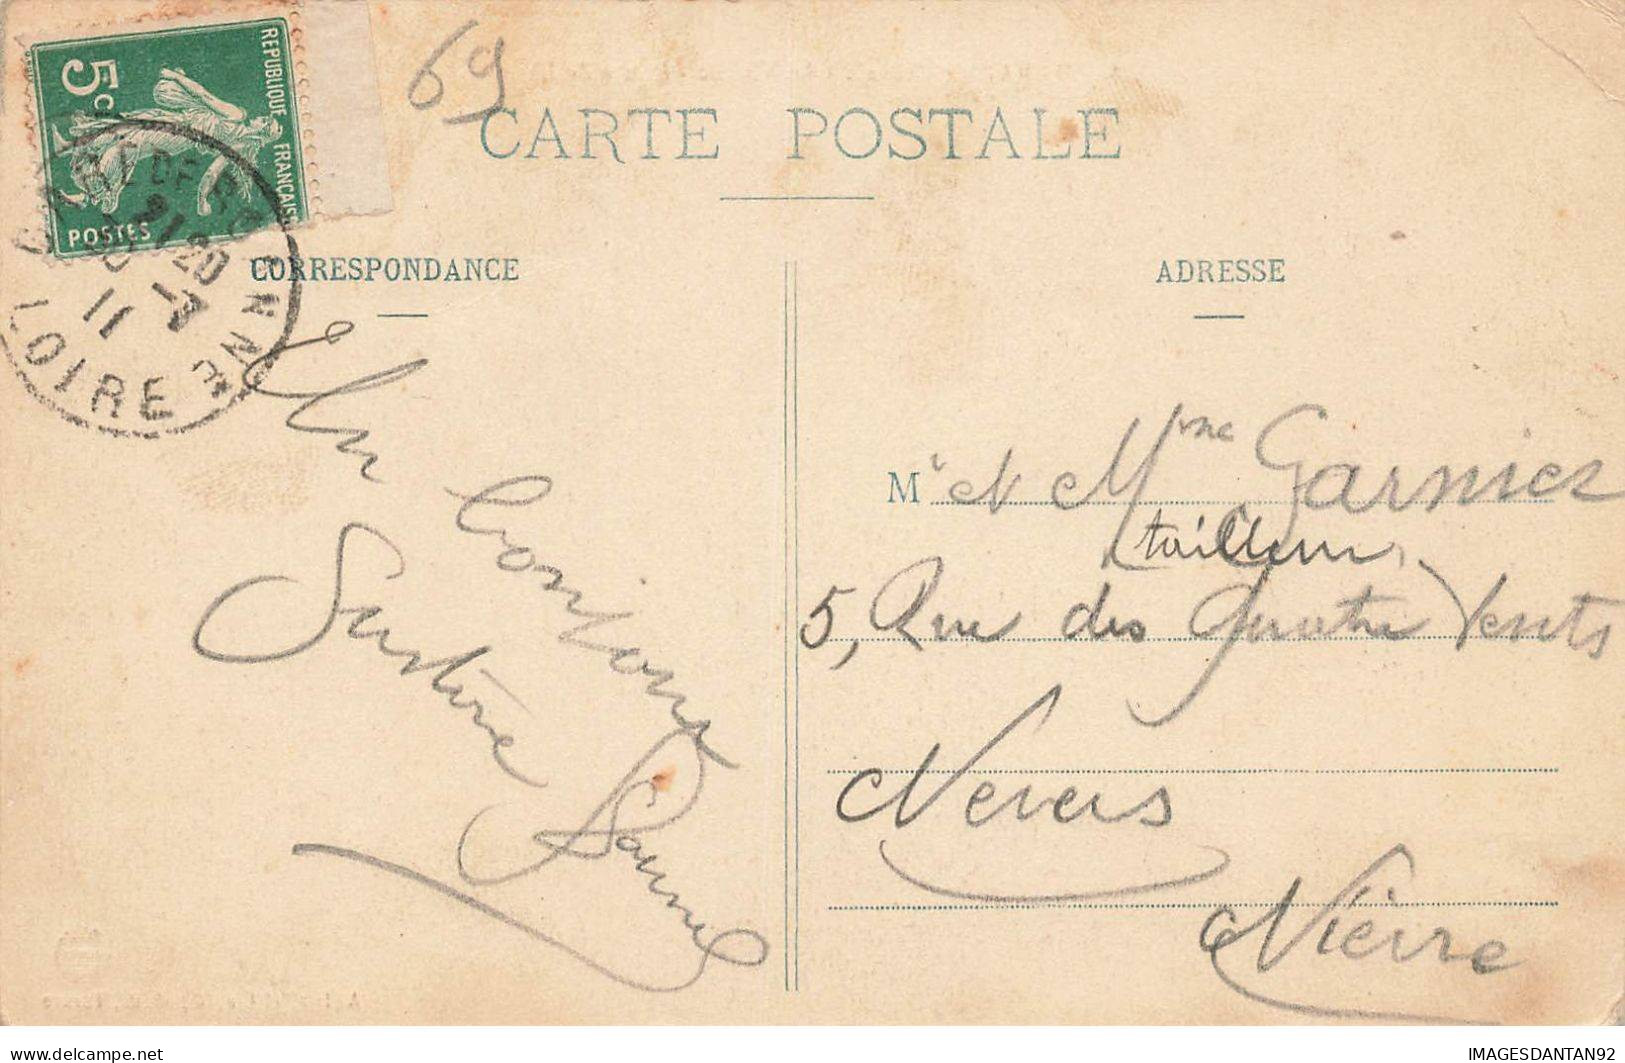 69
REPUBLIQUE FRANCAISE
5 c
POSTES
GARE DE ROANNE
21 20
11
LOIRE
CARTE POSTALE
CORRESPONDANCE
ADRESSE
Un bonjour
Samuel
M et Mme Garnier
tailleur
5, Rue des Quatre Vents
Nevers
Nièvre
www.delcampe.net
IMAGESDANTAN92